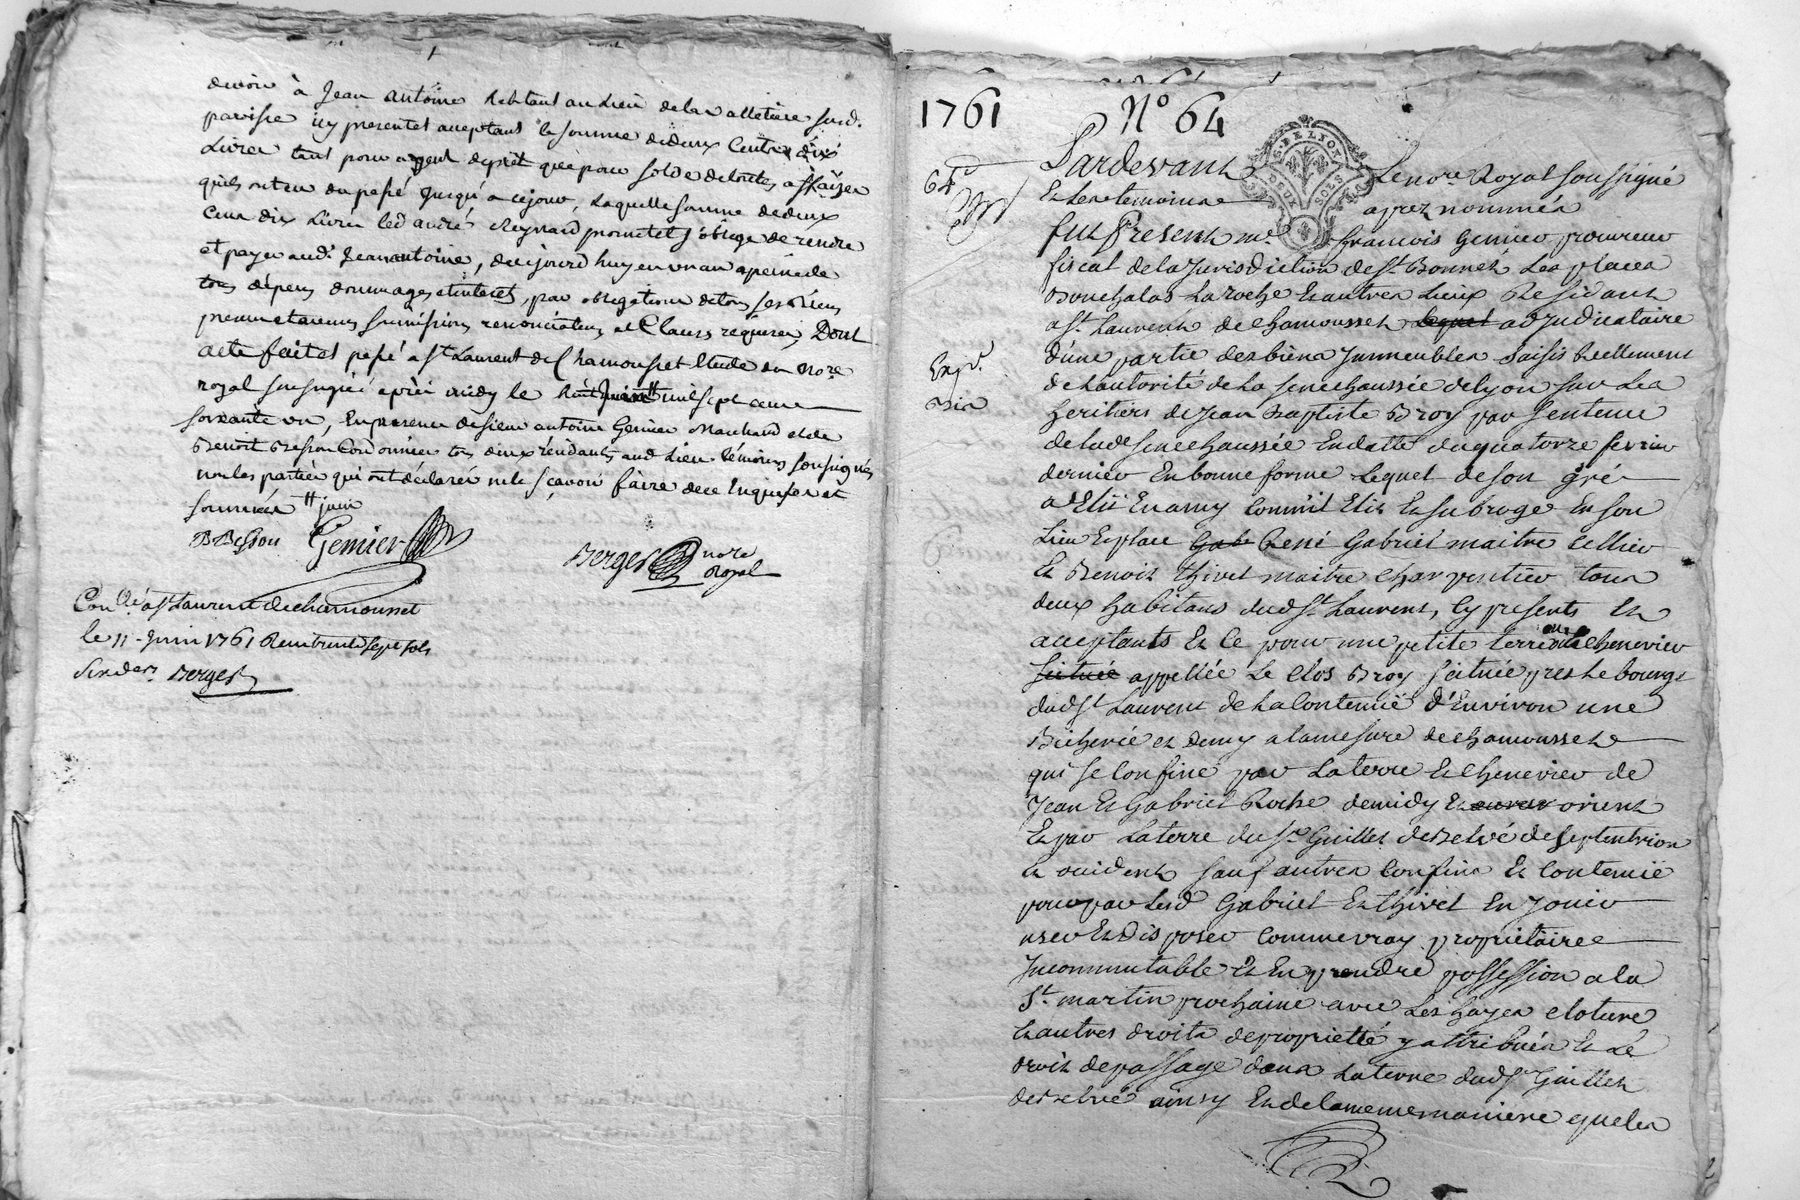 devoir à Jean Antoine habitant au Lieu de la valletiere susd.
paroisse icy present et acceptant la somme de deux Cents dix
Livres tant pour argent depret que pour solde de touttes affaires
quils ont eu du passé jusqu'a ce jour, Laquelle somme de deux
Cens dix Livres led. andré Reynard promet et s'oblige de rendre
et payer aud. Jean antoine, d'aujourd'huy en un an a peine de
tous dépens dommages et interets, par obligation de tous ses biens
presents et avenirs soumissions renonciations et Clauses requises, Dont
acte fait et passé a St Laurent de Chamousset Etude du nore.
royal soussigné après midy le huit juin mil sept cent
soixante un, En presence de sieur antoine Gemier Marchand et de
Benoit Besson Cordonnier tous deux résidants aud. Lieu témoins soussignés
non les parties qui ont déclarés ne le sçavoir faire de ce Enquises et
sommées # juin
B Besson Gemier Berger nore Royal
Con.lé a St Laurent de chamousset
le 11 Juin 1761 Recu trente sept sols
six den. Berger
1761 No 64
G. DE LYON
DEUX SOLS
64e
Pardevant Le nore. Royal soussigné
Et Les temoins apres nommés
fut Present me. François Gemier procureur
fiscal de la Jurisdiction de St Bonnet Les places
Souchalas La roche Et autres Lieux Residant
a St Laurent de Chamousset lequel adjudicataire
Expd.
d'une partie des biens Immeubles saisis Reellement
de Lautorité de La senechaussée de Lyon sur Les
heritiers de Jean Baptiste Broy par Sentence
de Lade senechaussée En datte du quatorze fevrier
dernier En bonne forme Lequel de son gré
a Elu En amy Commit Elit Et subroge En son
Lieu Et place Gab René Gabriel maitre sellier
Et Benoit thivel maitre charpentier tous
deux habitans dud St Laurent, Cy presents Et
acceptants Et Ce pour une petite terre ou chenevier
scituée appellée Le Clos Broy scituée pres Le bourgt
dud St Laurent de La Contenüe d'Environ une
Bicherée et demy a la mesure de chamousset
qui se Confine par La terre Et chenevier de
Jean Et Gabriel Roche de midy Et orient
Et par La terre du sr Guillet deBelvé de septentrion
Et occident sauf autres Confins Et Contenüe
pour par Lesd Gabriel Et thivel En jouir
user Et Disposer Comme vray proprietaire
Incommutable Et En prendre possession a la
St. martin prochaine avec Les hayes cloture
Et autres droits de proprietté y attribués Et Le
droit de passage dans La terre dud sr Guillet
deBelvé ainsy Et de la meme maniere que les